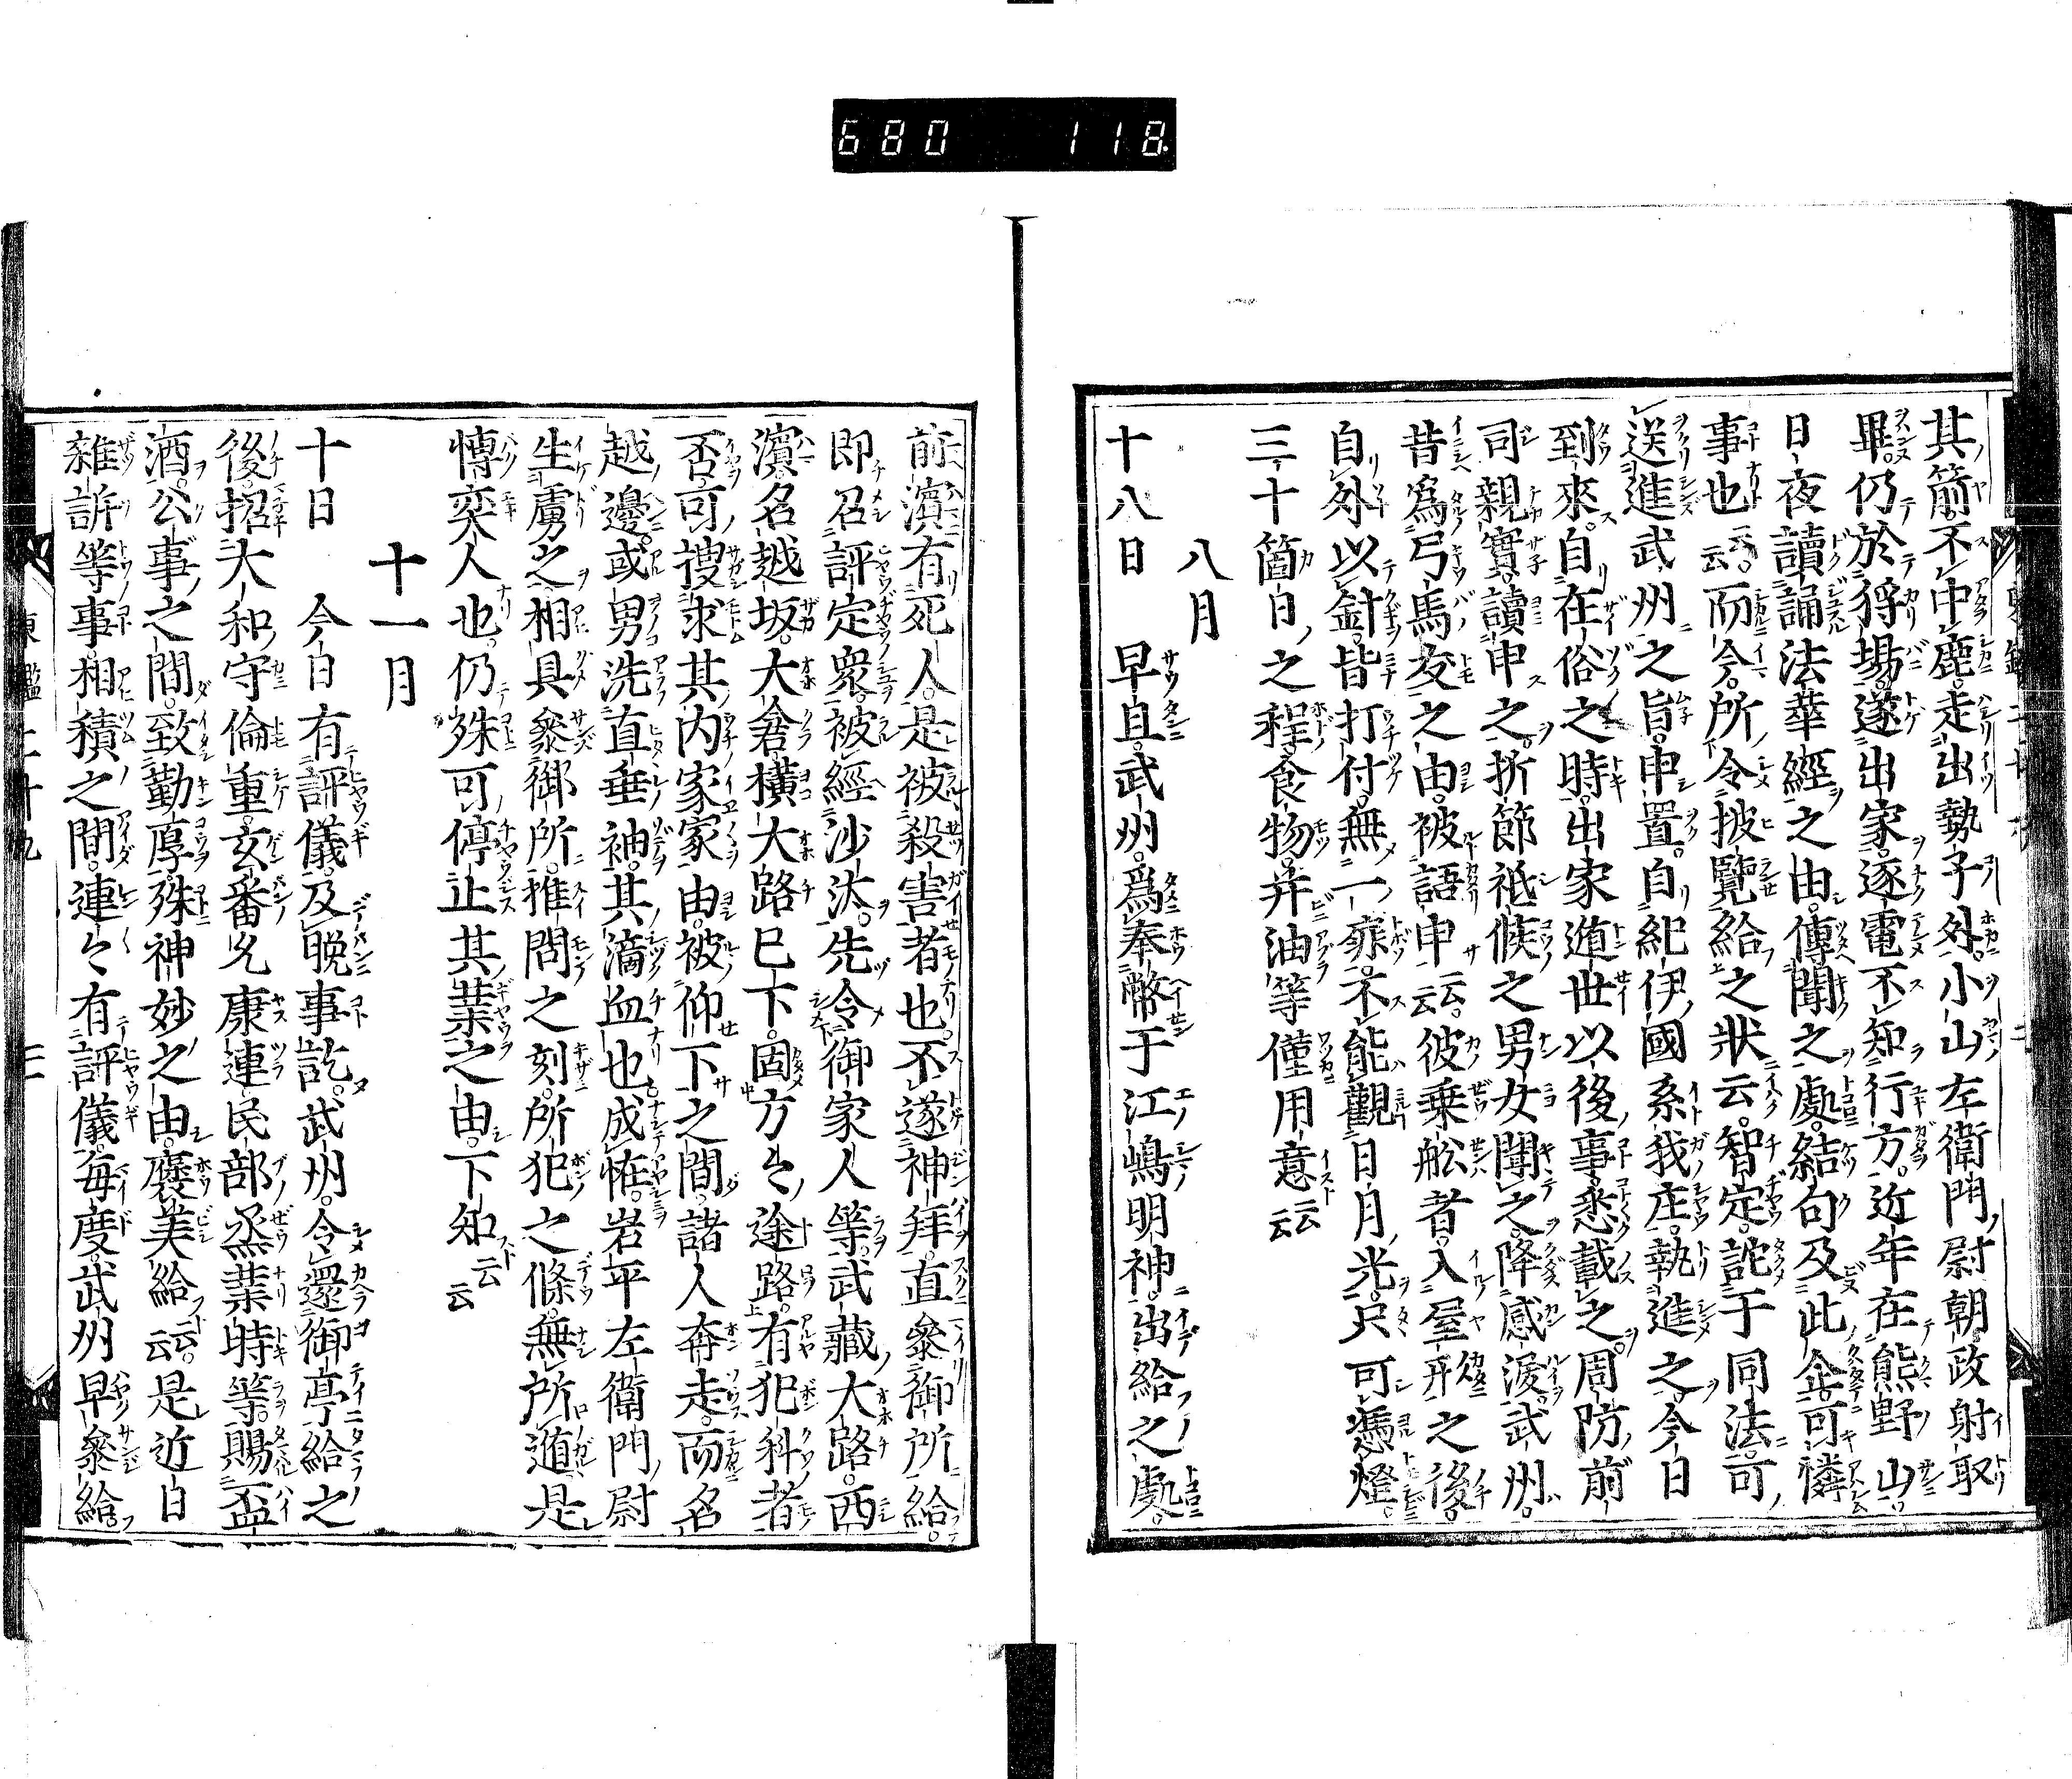 680 118
其箭不中鹿走出勢子外小山左衛門尉朝政射取
畢仍於狩場遂出家逐電不知行方近年在熊野山
日夜讀誦法華經之由傳聞之處結句及此企可憐
事也云云而今所令披覽給之狀云智定詫于同法可
送進武州之旨申置自紀伊國糸我庄執進之今日
到來自在俗之時出家遁世以後事悉載之周防前
司親實讀申之折節祗候之男女聞之降感淚武州
昔爲弓馬友之由被語申云云彼乗舩者入屋形之後
自外以針皆打付無一扉不能觀日月光只可憑燈
三十箇日之程食物并油等僅用意云云
八月
十八日 早旦武州爲奉幣于江嶋明神出給之處
前濱有死人是被殺害者也不遂神拜直參御所給
即召評定衆被經沙汰先令御家人等武藏大路西
濱名越坂大倉横大路巳下固方々途路有犯科者
否可搜求其内家家由被仰下之間諸人奔走而名
越邊或男洗直垂袖其滴血也成恠岩平左衛門尉
生虜之相具參御所推問之刻所犯之條無所遁是
愽奕人也仍殊可停止其業之由下知云云
十一月
十日 今日有評儀及晚事訖武州令還御亭給之
後招大和守倫重玄番允康連民部烝業時等賜盃
酒公事之間致勤厚殊神妙之由褒美給云云是近日
雜訴等事相積之間連々有評儀毎度武州早參給